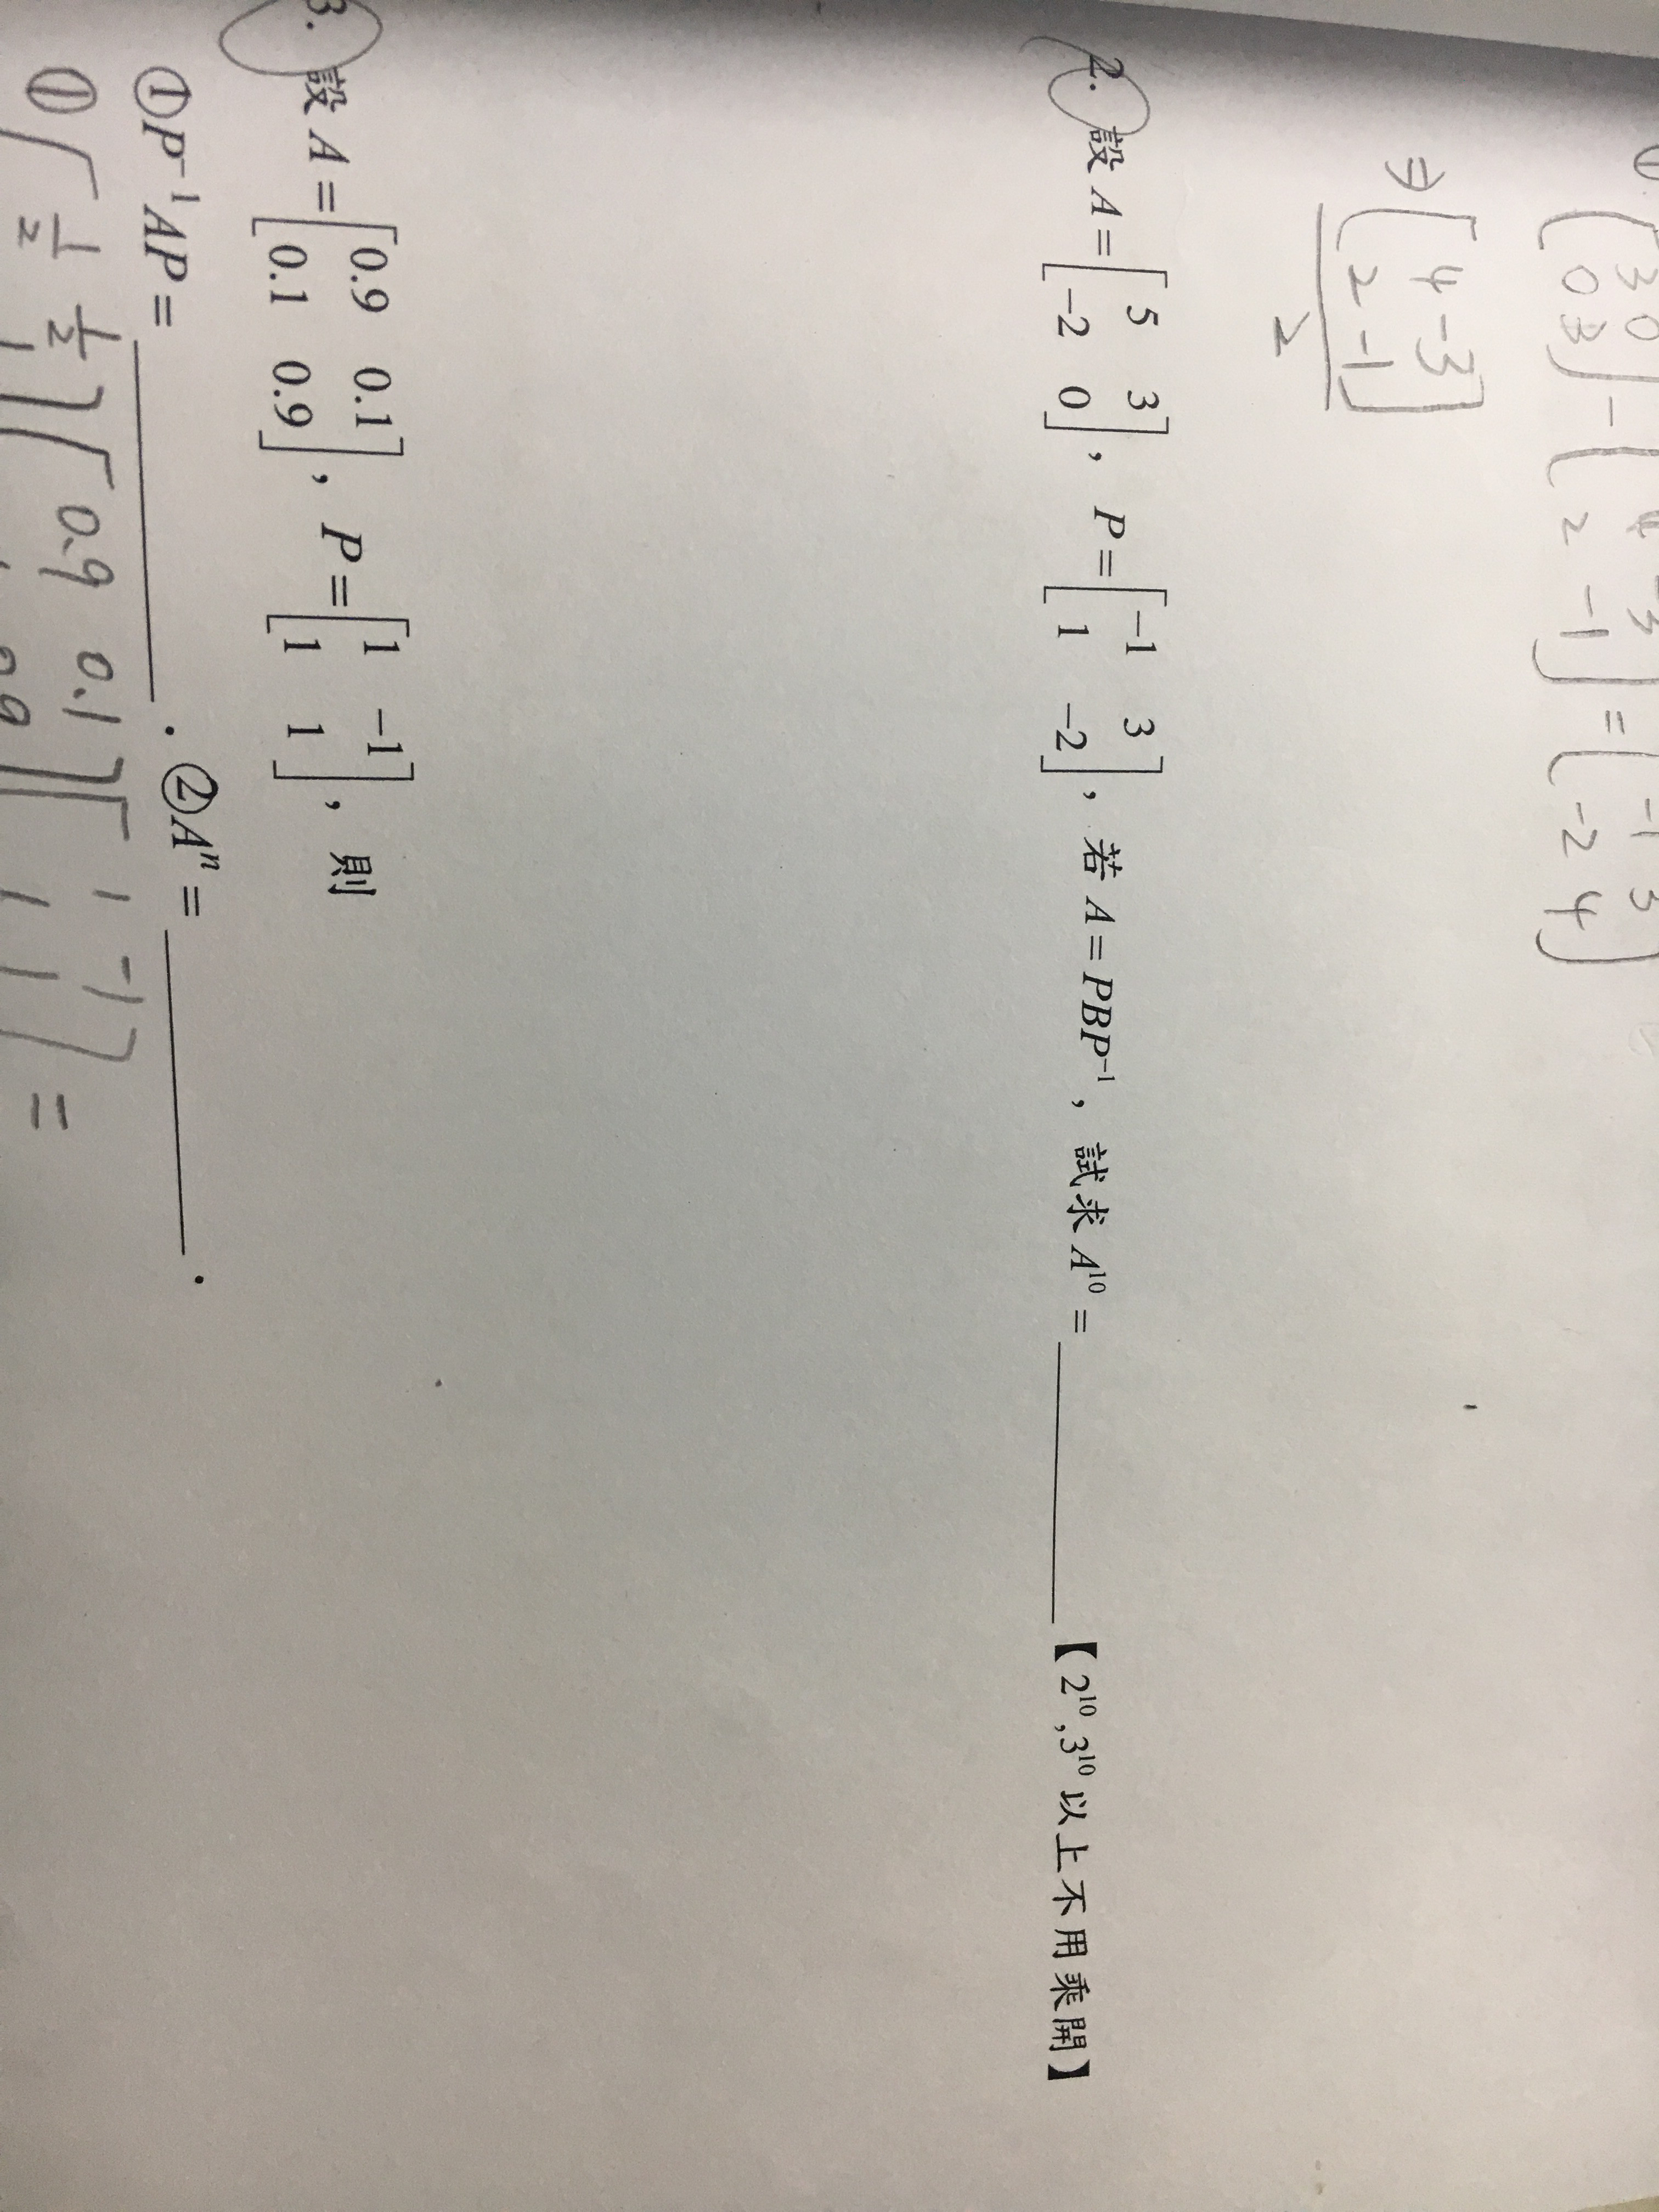 ① [3 0
0 3] - [4 -3
2 -1] = [-1 3
-2 4]
⇒ [4 -3
2 -1]
2
2. 設 A = [5 3
-2 0], P = [-1 3
1 -2], 若 A = PBP⁻¹, 試求 A¹⁰ = ________ 【2¹⁰,3¹⁰ 以上不用乘開】
3. 設 A = [0.9 0.1
0.1 0.9], P = [1 -1
1 1], 則
①P⁻¹AP = ________. ②Aⁿ = ________.
① [1/2 1/2
1] [0.9 0.1
0.9] [1 -1
1 1] =